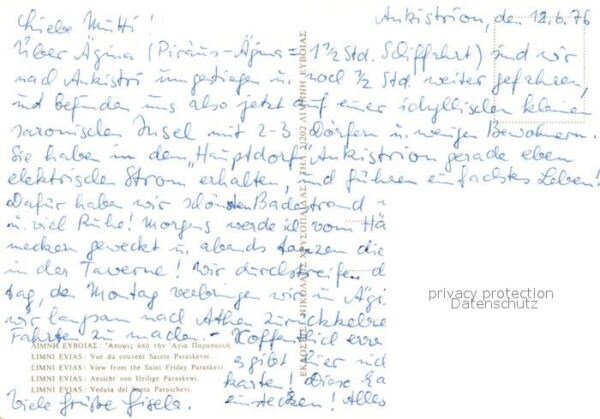 Ankistrion, den 12.6.76
Liebe Mutti!
Über Ägina (Piräus-Ägina = 1 1/2 Std. Schiffahrt) sind wir
nach Ankistri umgestiegen u. noch 1/2 Std. weiter gefahren,
und befinden uns also jetzt auf einer idyllischen kleinen
saronischen Insel mit 2-3 Dörfern u. wenigen Bewohnern.
Sie haben in dem "Hauptdorf" Ankistrion gerade eben
elektrischen Strom erhalten, und führen einfachstes Leben!
Dafür haben wir schönsten Badestrand
u. viel Ruhe! Morgens werde ich vom Hä
mecken geweckt u. abends tanzen die
in der Taverne! Wir durchstreifen d
tag, den Montag verbringen wir in Ägi
wir langsam nach Athen zurückkehre
Fahrten zu machen. - Hoffentlich erre
es gibt hier nic
karten! Diese ka
einstecken! Alles
Viele Grüße Gisela.
ΛΙΜΝΗ ΕΥΒΟΙΑΣ: Ἄποψις ἀπό τήν Ἁγία Παρασκευή.
LIMNI EVIAS: Vue du couvent Sainte Paraskevie.
LIMNI EVIAS: View from the Saint Friday Paraskevi
LIMNI EVIAS: Ansicht von Heilige Paraskewi.
LIMNI EVIAS: Veduta del Santa Paraschevi.
ΕΚΔΟΣΙΣ: ΝΙΚΟΛΑΟΣ ΧΡΥΣΟΠΑΙΔΑΣ ΤΗΛ 31202 ΛΙΜΝΗ ΕΥΒΟΙΑΣ
privacy protection
Datenschutz